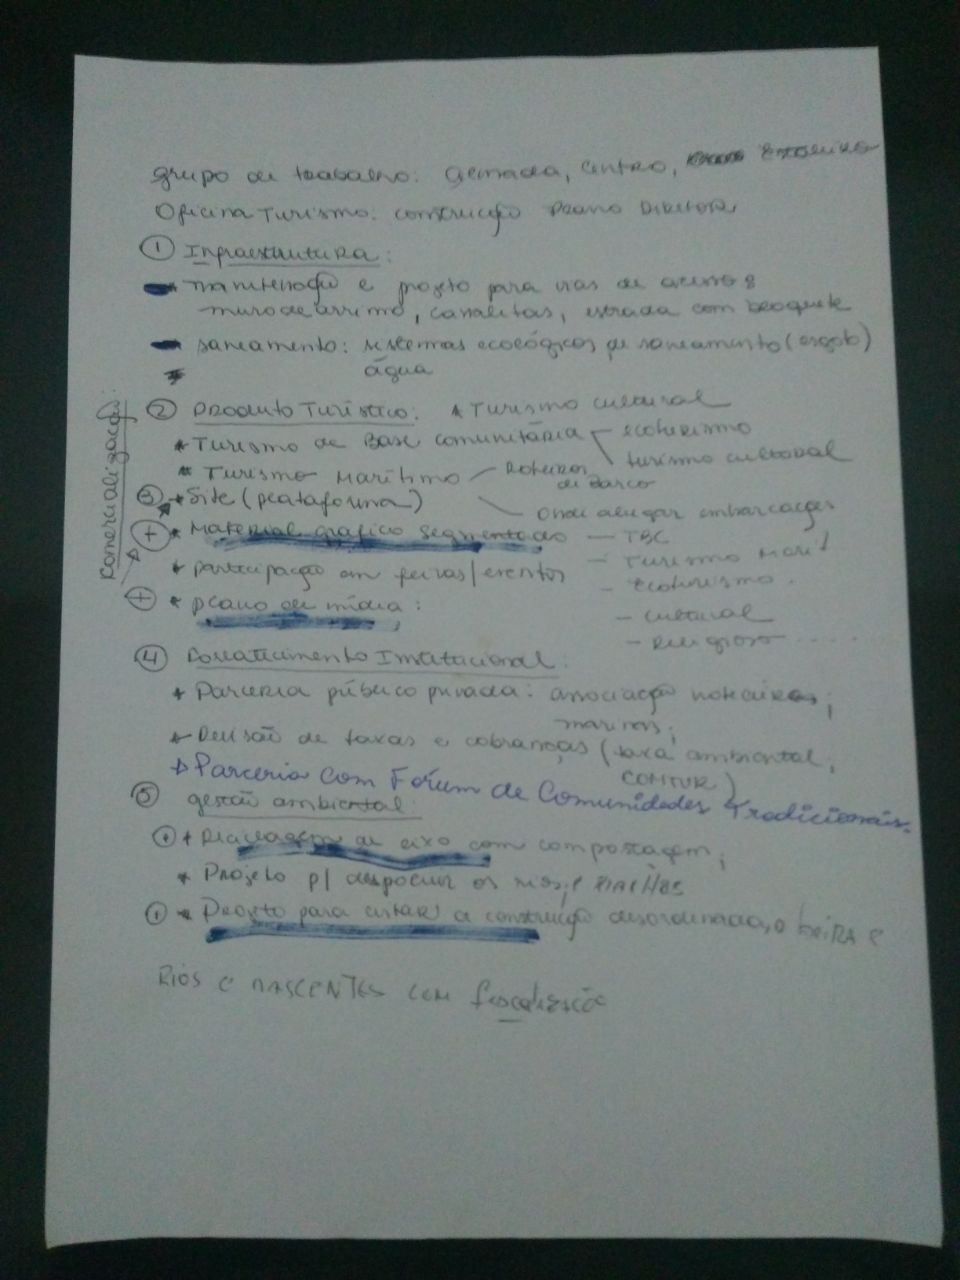 grupo de trabalho: Gemada, Centro,
Oficina Turismo: construção Plano Diretor
① Infraestrutura:
* manutenção e projeto para vias de acesso &
muro de arrimo, canaletas, estrada com bloquete
saneamento: sistemas ecológicos de saneamento (esgoto)
água
② Produto Turístico: * Turismo cultural
* Turismo de Base comunitária – ecoturismo
turismo cultural
* Turismo Marítimo – Roteiros
de Barco
onde alugar embarcações
Comercialização:
③ * Site (plataforma)
+ * Material gráfico segmentado – TBC
– Turismo Marít
* participação em feiras/eventos – Ecoturismo.
+ * plano de mídia: – cultural
– Religioso .....
④ Institucional:
* Parceria público privada: associação
* Revisão de taxas e cobranças (taxa ambiental,
COMTUR)
* Parceria com Fórum de Comunidades Tradicionais.
⑤ gestão ambiental:
+ * Reciclagem de lixo com compostagem;
* Projeto p/ despoluir os rios e riachos
* Projeto para evitar a construção desordenada, a beira e
Rios e nascentes com fiscalização